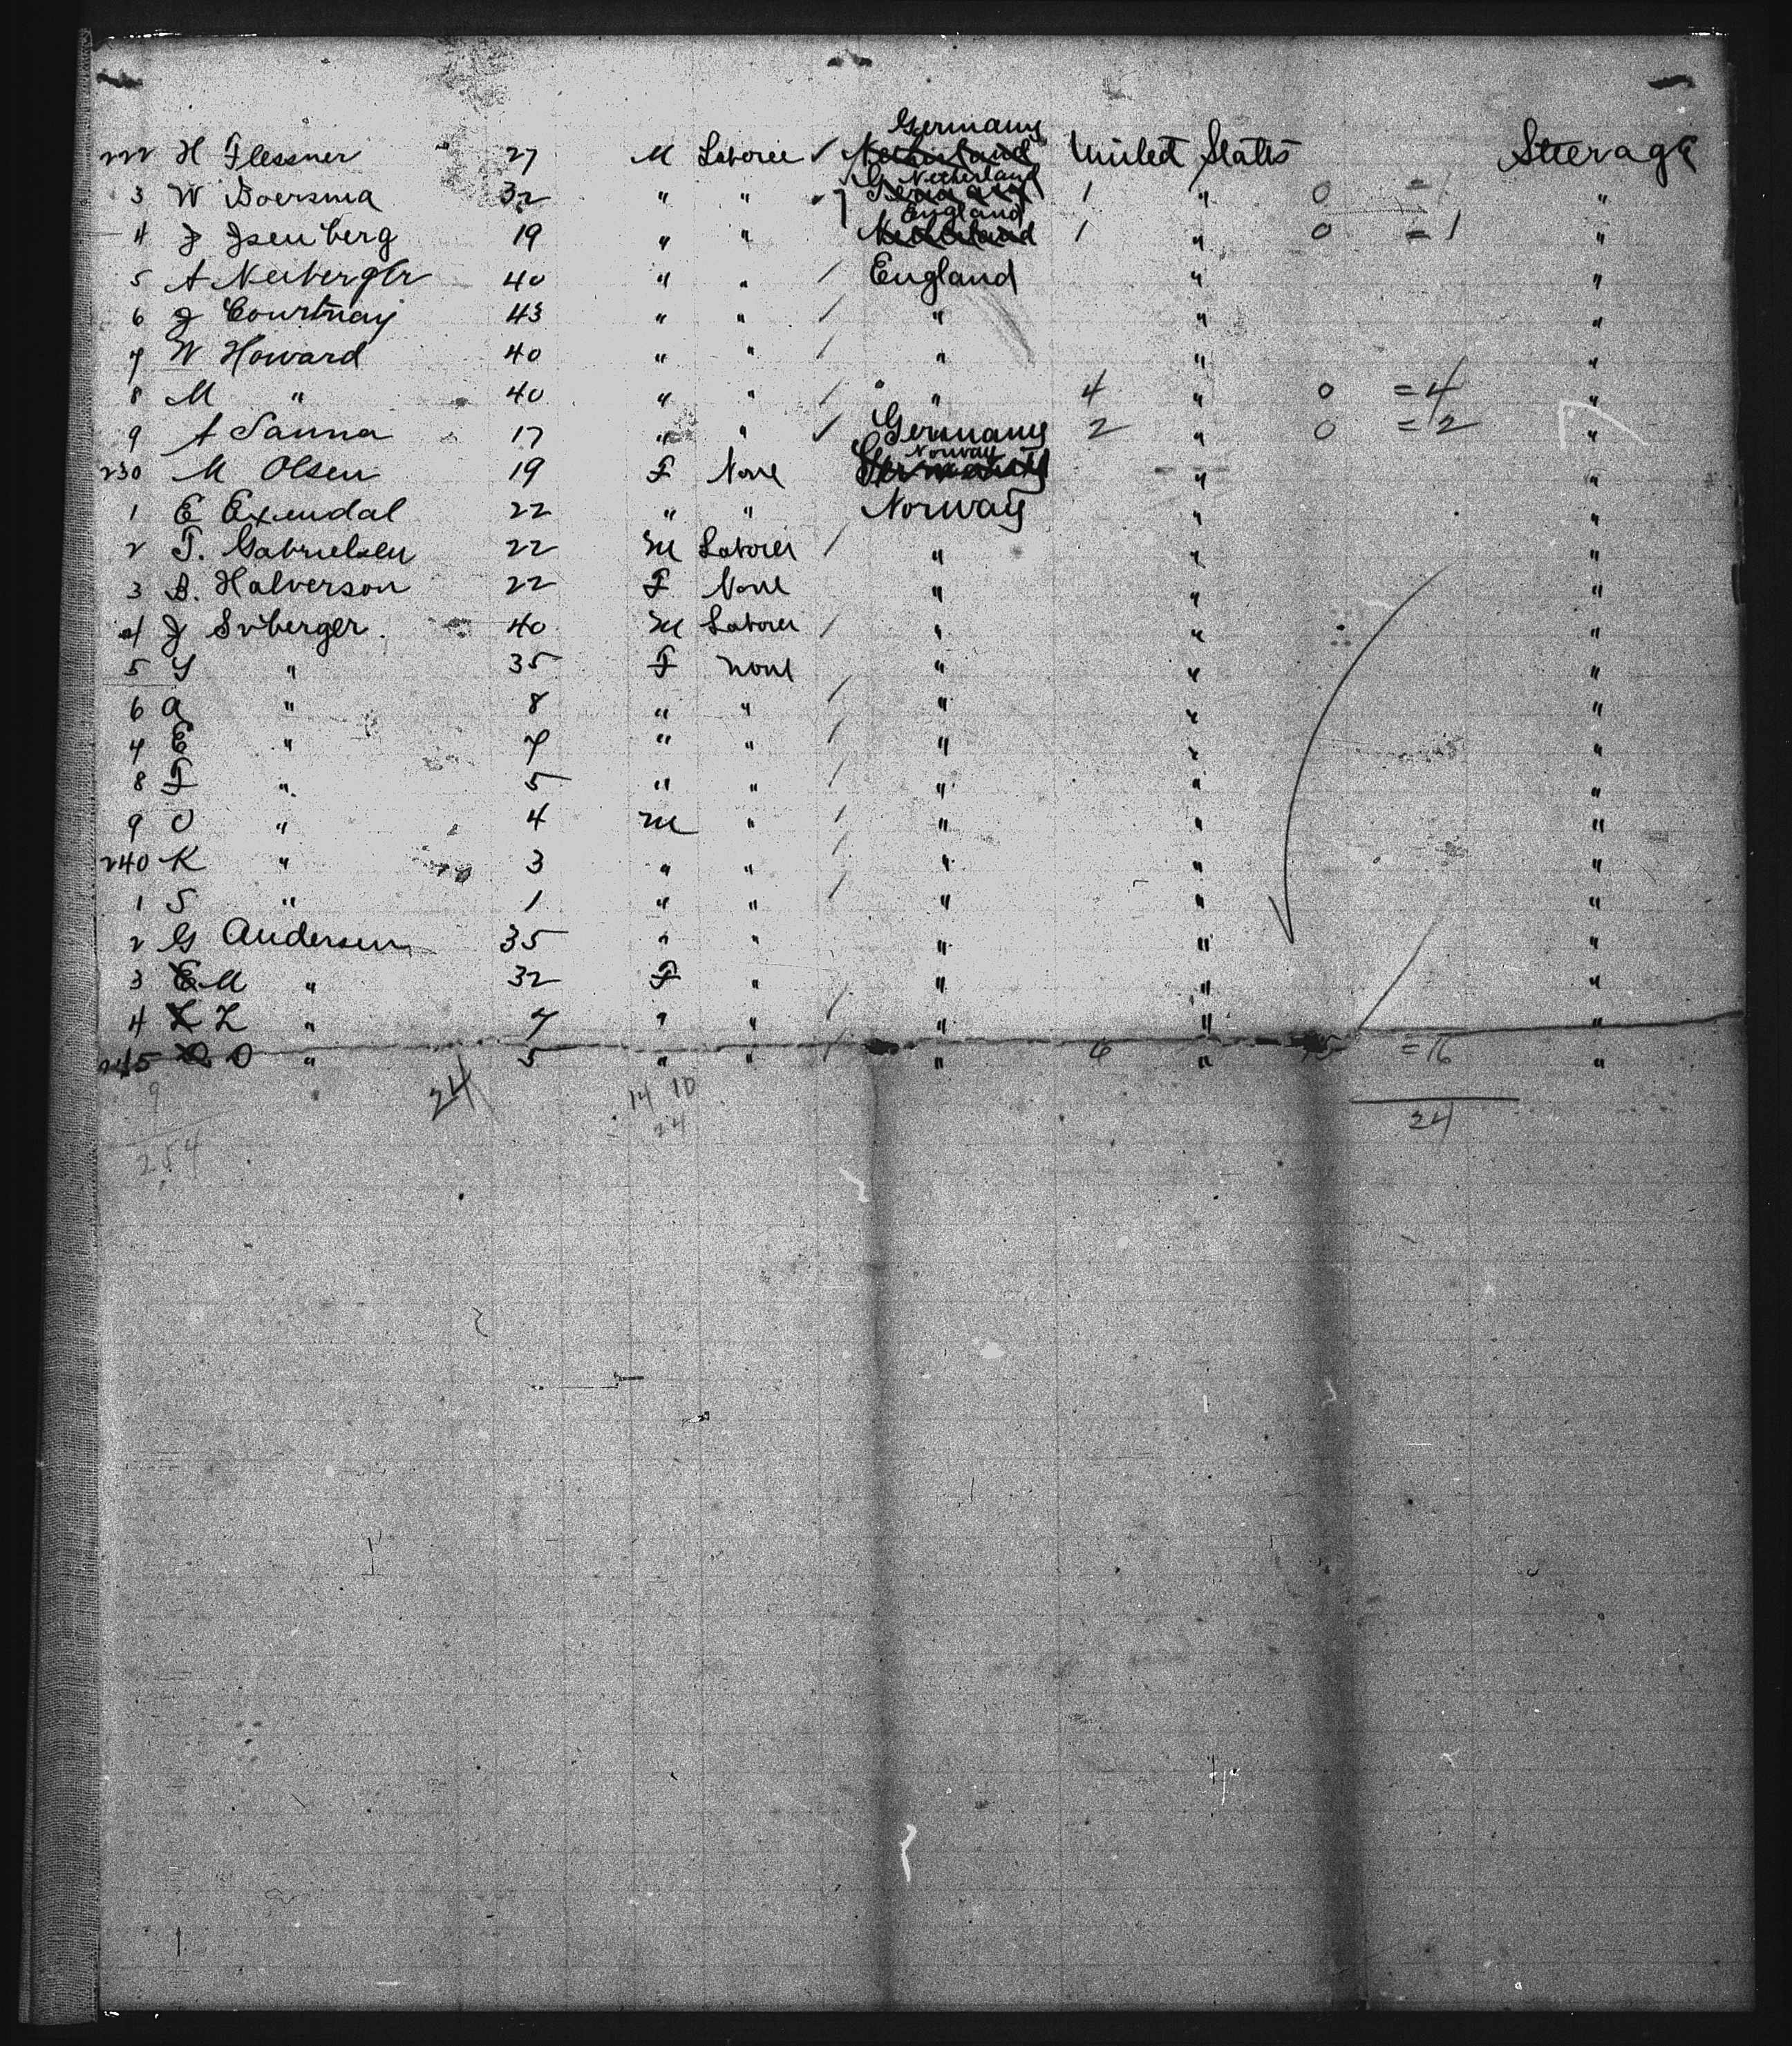 Germany
222 H Flessner 27 M Laborer ✓ ~~Netherland~~ United States Steerage
Netherland
3 W Boersma 32 " " ~~Germany~~ 1 " 0 = 1 "
England
4 J Isenberg 19 " " ~~Netherland~~ 1 " 0 = 1 "
5 A Neuberger 40 " " / England " "
6 J Courtnay 43 " " / " " "
7 W Howard 40 " " / " " "
8 M " 40 " " / " 4 " 0 = 4 "
9 A Sanna 17 " " ✓ Germany 2 " 0 = 2 "
Norway
230 M Olsen 19 F None ~~Germany~~ " "
1 E Exendal 22 " " Norway " "
2 T. Gabrielsen 22 M Laborer / " " "
3 B. Halverson 22 F None " " "
4 J Svberger 40 M Laborer / " " "
5 " 35 F None " " "
6 A " 8 " " / " " "
7 E " 7 " " / " " "
8 F " 5 " " / " " "
9 O " 4 M " / " " "
240 K " 3 " " / " " "
1 S " 1 " " / " " "
2 G Andersen 35 " " " " "
3 ~~E~~ M " 32 F " " " "
4 ~~L~~ L " 7 " " / " " "
245 O " 5 " " / " 6 " = 16 "
9 24 14 10 24
254 24